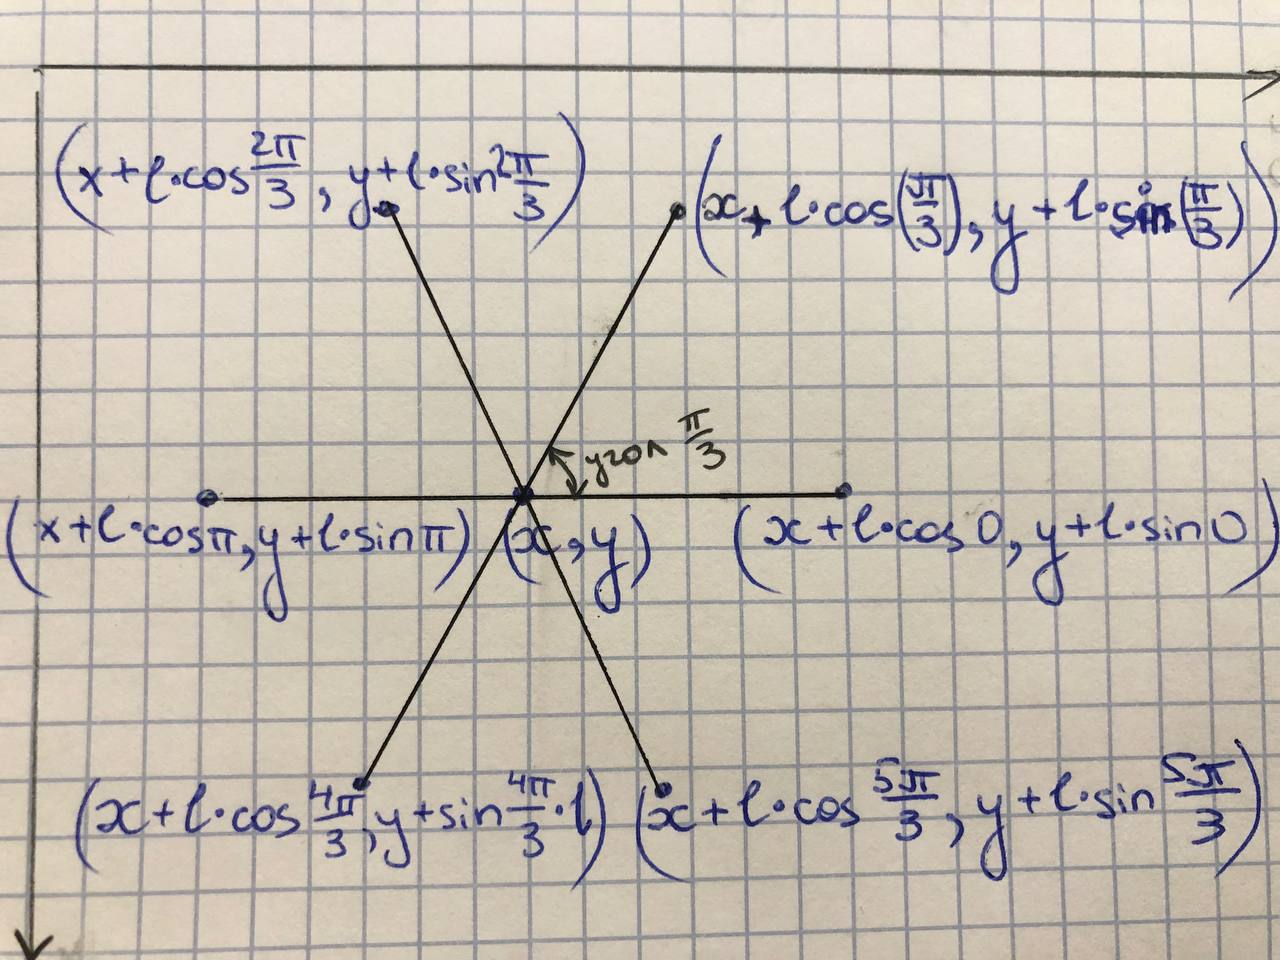 (x+l·cos 2π/3, y+l·sin 2π/3)
(x+l·cos(π/3), y+l·sin(π/3))
угол π/3
(x+l·cosπ, y+l·sinπ) (x,y) (x+l·cos0, y+l·sin0)
(x+l·cos 4π/3, y+sin 4π/3·l) (x+l·cos 5π/3, y+l·sin 5π/3)